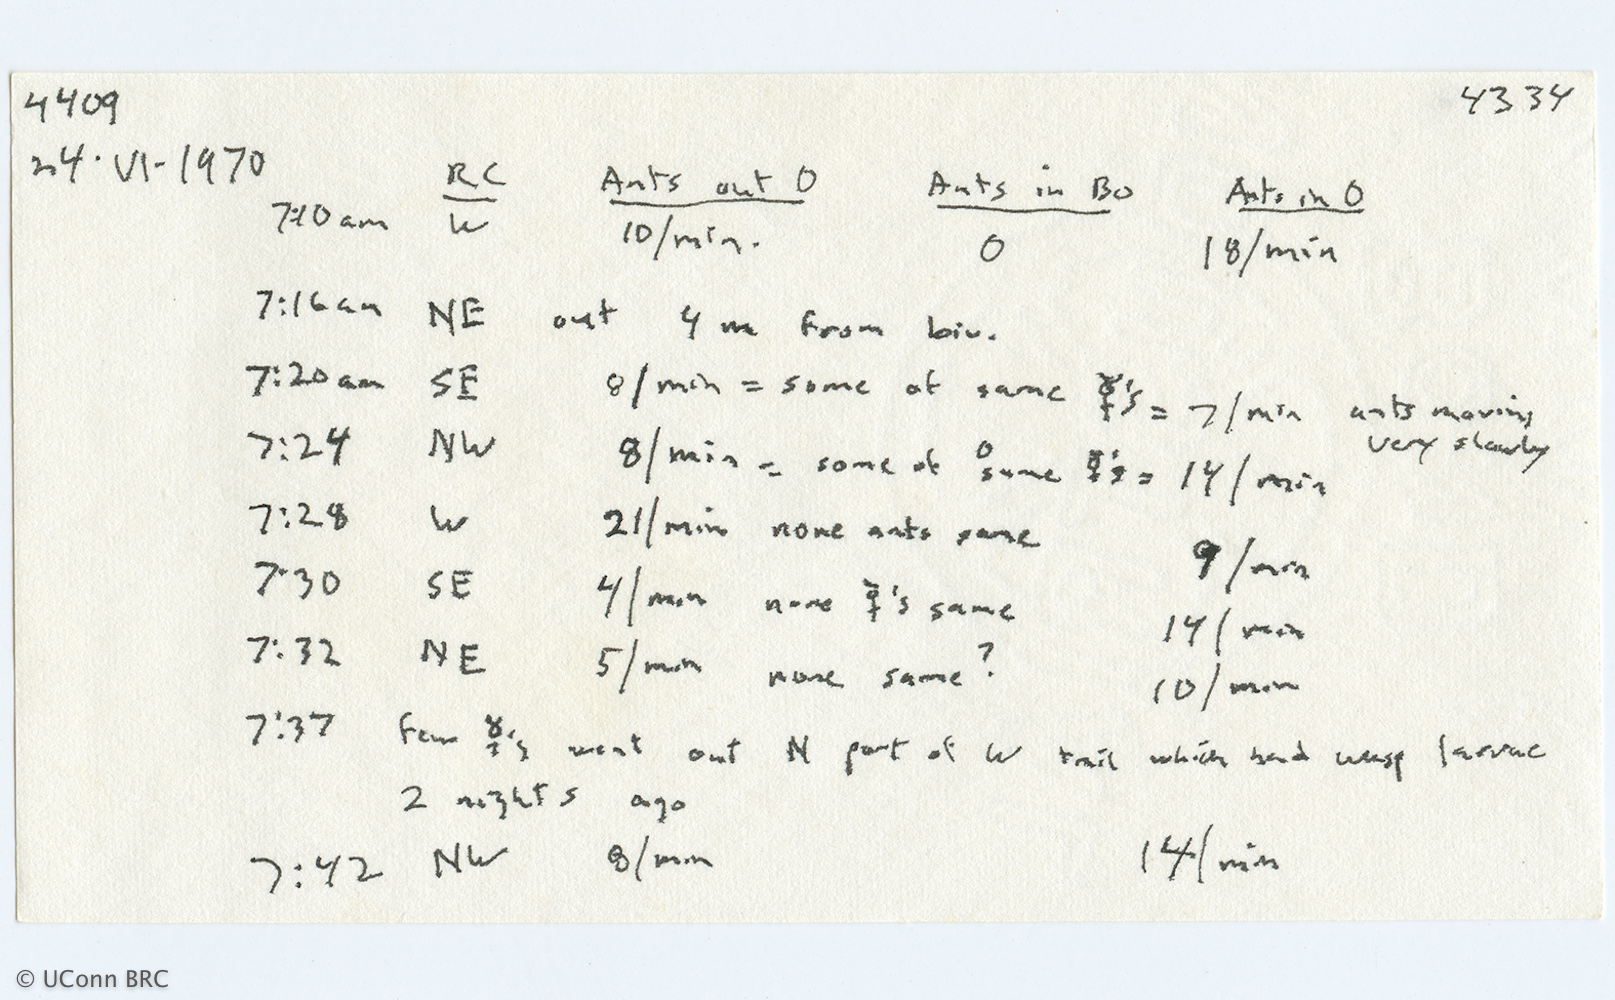 4409 4334
24-VI-1970
RC Ants out 0 Ants in BO Ants in 0
7:10am W 10/min. 0 18/min
7:16am NE out 4 m from biv.
7:20am SE 8/min = some of same ☿'s = 7/min ants moving
very slowly
7:24 NW 8/min = some of same ☿'s = 14/min
7:28 W 21/min none ants same 9/min
7:30 SE 4/min none ☿'s same 14/min
7:32 NE 5/min none same? 10/min
7:37 few ☿'s went out N part of W trail which had wasp larvae
2 nights ago
7:42 NW 8/min 14/min
© UConn BRC